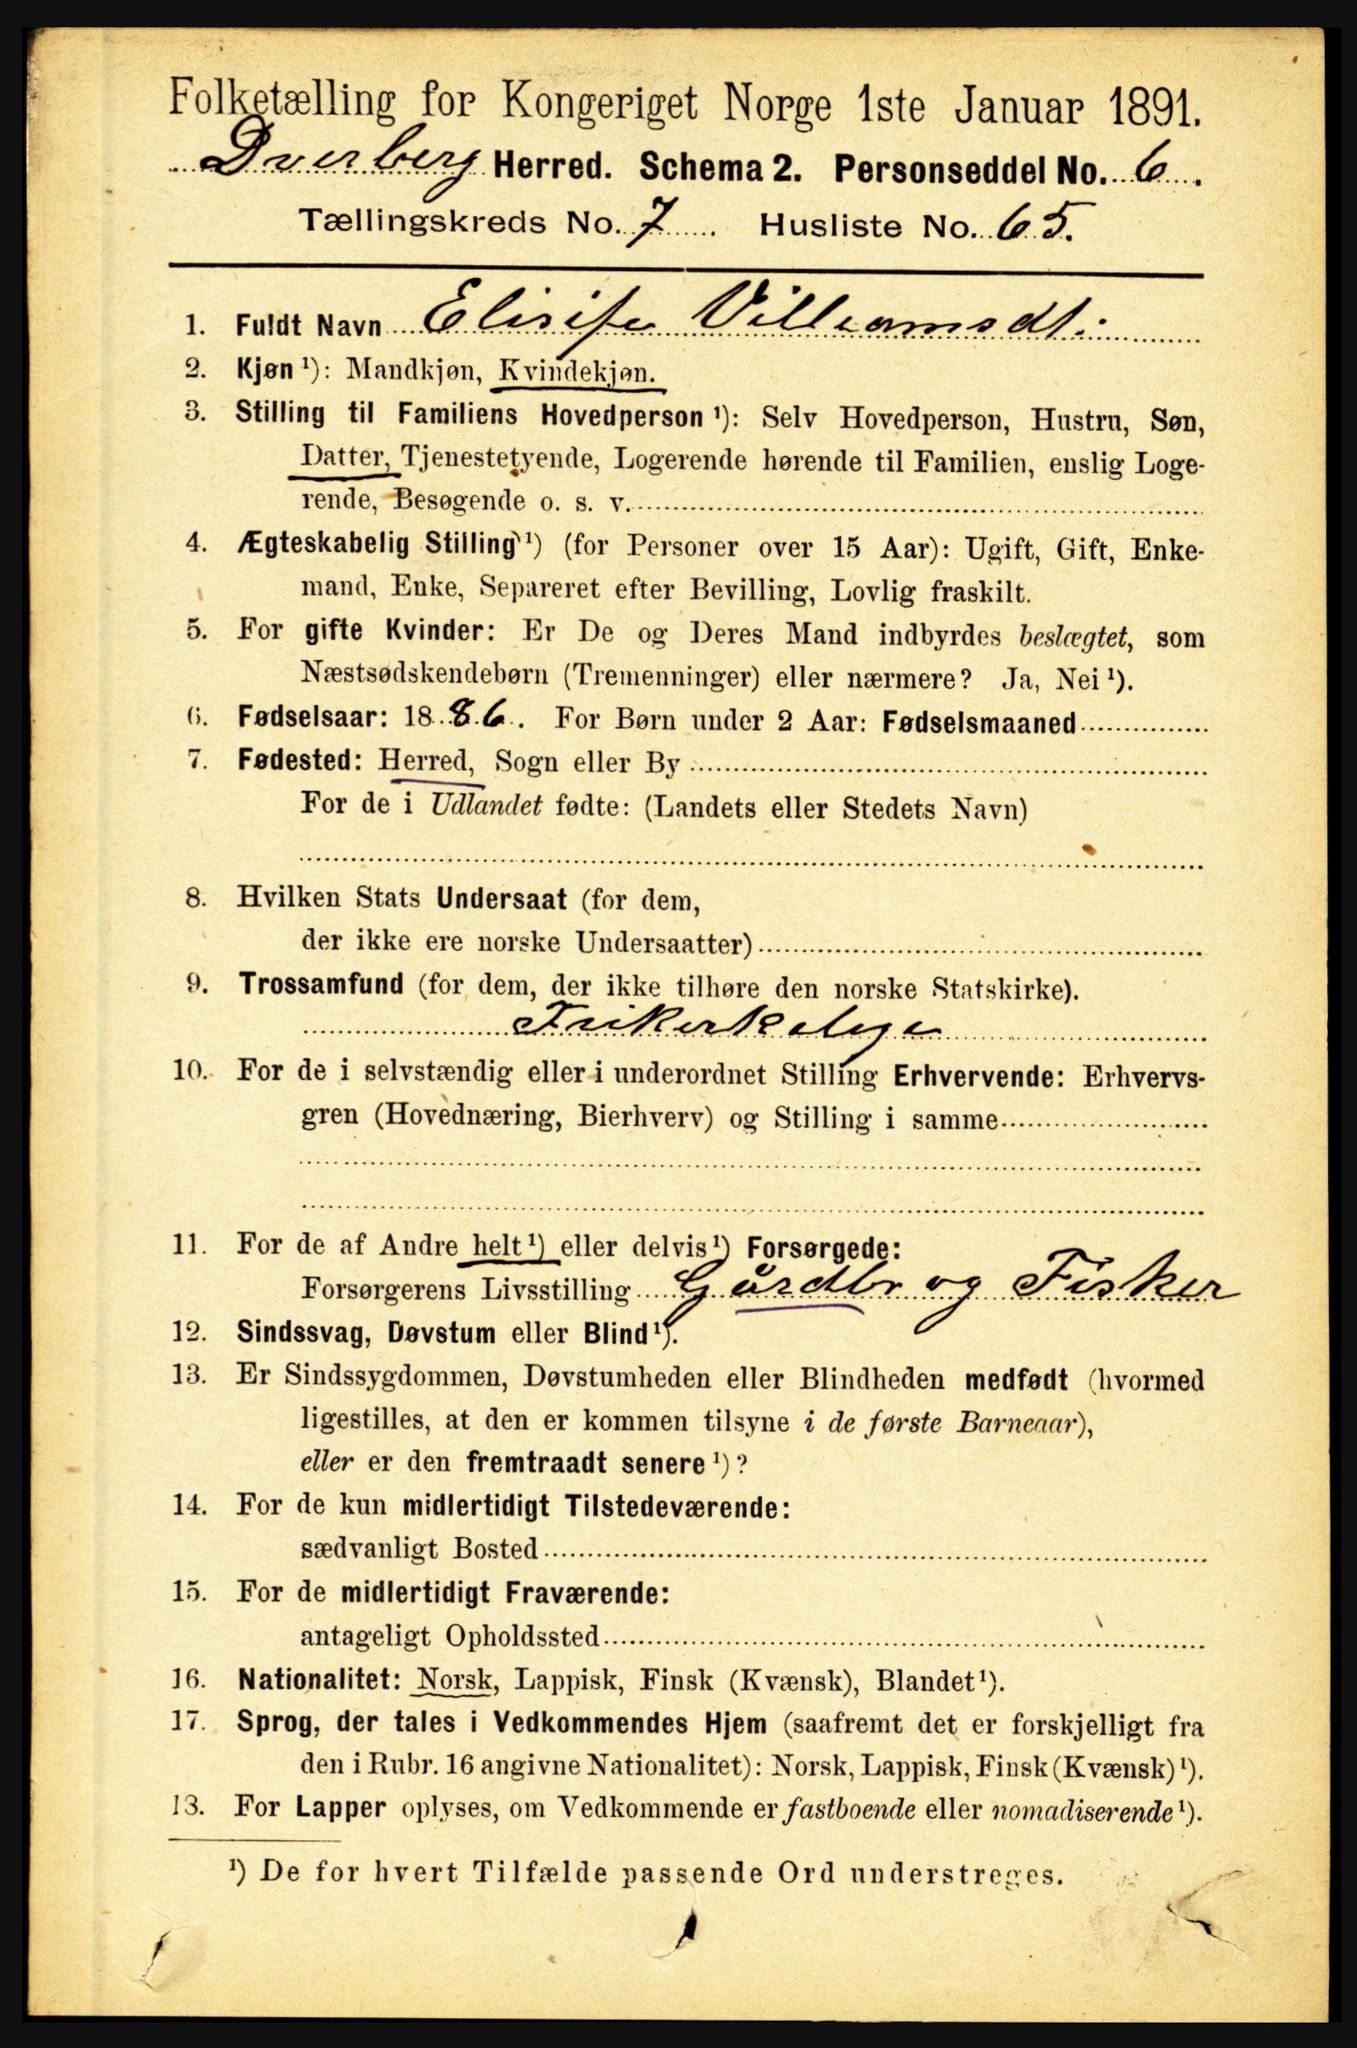 Folketælling for Kongeriget Norge 1ste Januar 1891.
Dverberg Herred. Schema 2. Personseddel No. 6.
Tællingskreds No. 7 Husliste No. 65.
1. Fuldt Navn Elisife Villiamsdt:
2. Kjøn ¹): Mandkjøn, Kvindekjøn.
3. Stilling til Familiens Hovedperson ¹): Selv Hovedperson, Hustru, Søn,
Datter, Tjenestetyende, Logerende hørende til Familien, enslig Loge-
rende, Besøgende o. s. v.
4. Ægteskabelig Stilling ¹) (for Personer over 15 Aar): Ugift, Gift, Enke-
mand, Enke, Separeret efter Bevilling, Lovlig fraskilt.
5. For gifte Kvinder: Er De og Deres Mand indbyrdes beslægtet, som
Næstsødskendebørn (Tremenninger) eller nærmere? Ja, Nei ¹).
6. Fødselsaar: 1886. For Børn under 2 Aar: Fødselsmaaned
7. Fødested: Herred, Sogn eller By
For de i Udlandet fødte: (Landets eller Stedets Navn)
8. Hvilken Stats Undersaat (for dem,
der ikke ere norske Undersaatter)
9. Trossamfund (for dem, der ikke tilhøre den norske Statskirke).
Frikerkelige
10. For de i selvstændig eller i underordnet Stilling Erhvervende: Erhvervs-
gren (Hovednæring, Bierhverv) og Stilling i samme
11. For de af Andre helt ¹) eller delvis ¹) Forsørgede:
Forsørgerens Livsstilling Gårdbr og Fisker
12. Sindssvag, Døvstum eller Blind ¹).
13. Er Sindssygdommen, Døvstumheden eller Blindheden medfødt (hvormed
ligestilles, at den er kommen tilsyne i de første Barneaar),
eller er den fremtraadt senere ¹)?
14. For de kun midlertidigt Tilstedeværende:
sædvanligt Bosted
15. For de midlertidigt Fraværende:
antageligt Opholdssted
16. Nationalitet: Norsk, Lappisk, Finsk (Kvænsk), Blandet ¹).
17. Sprog, der tales i Vedkommendes Hjem (saafremt det er forskjelligt fra
den i Rubr. 16 angivne Nationalitet): Norsk, Lappisk, Finsk (Kvænsk) ¹).
13. For Lapper oplyses, om Vedkommende er fastboende eller nomadiserende ¹).
¹) De for hvert Tilfælde passende Ord understreges.